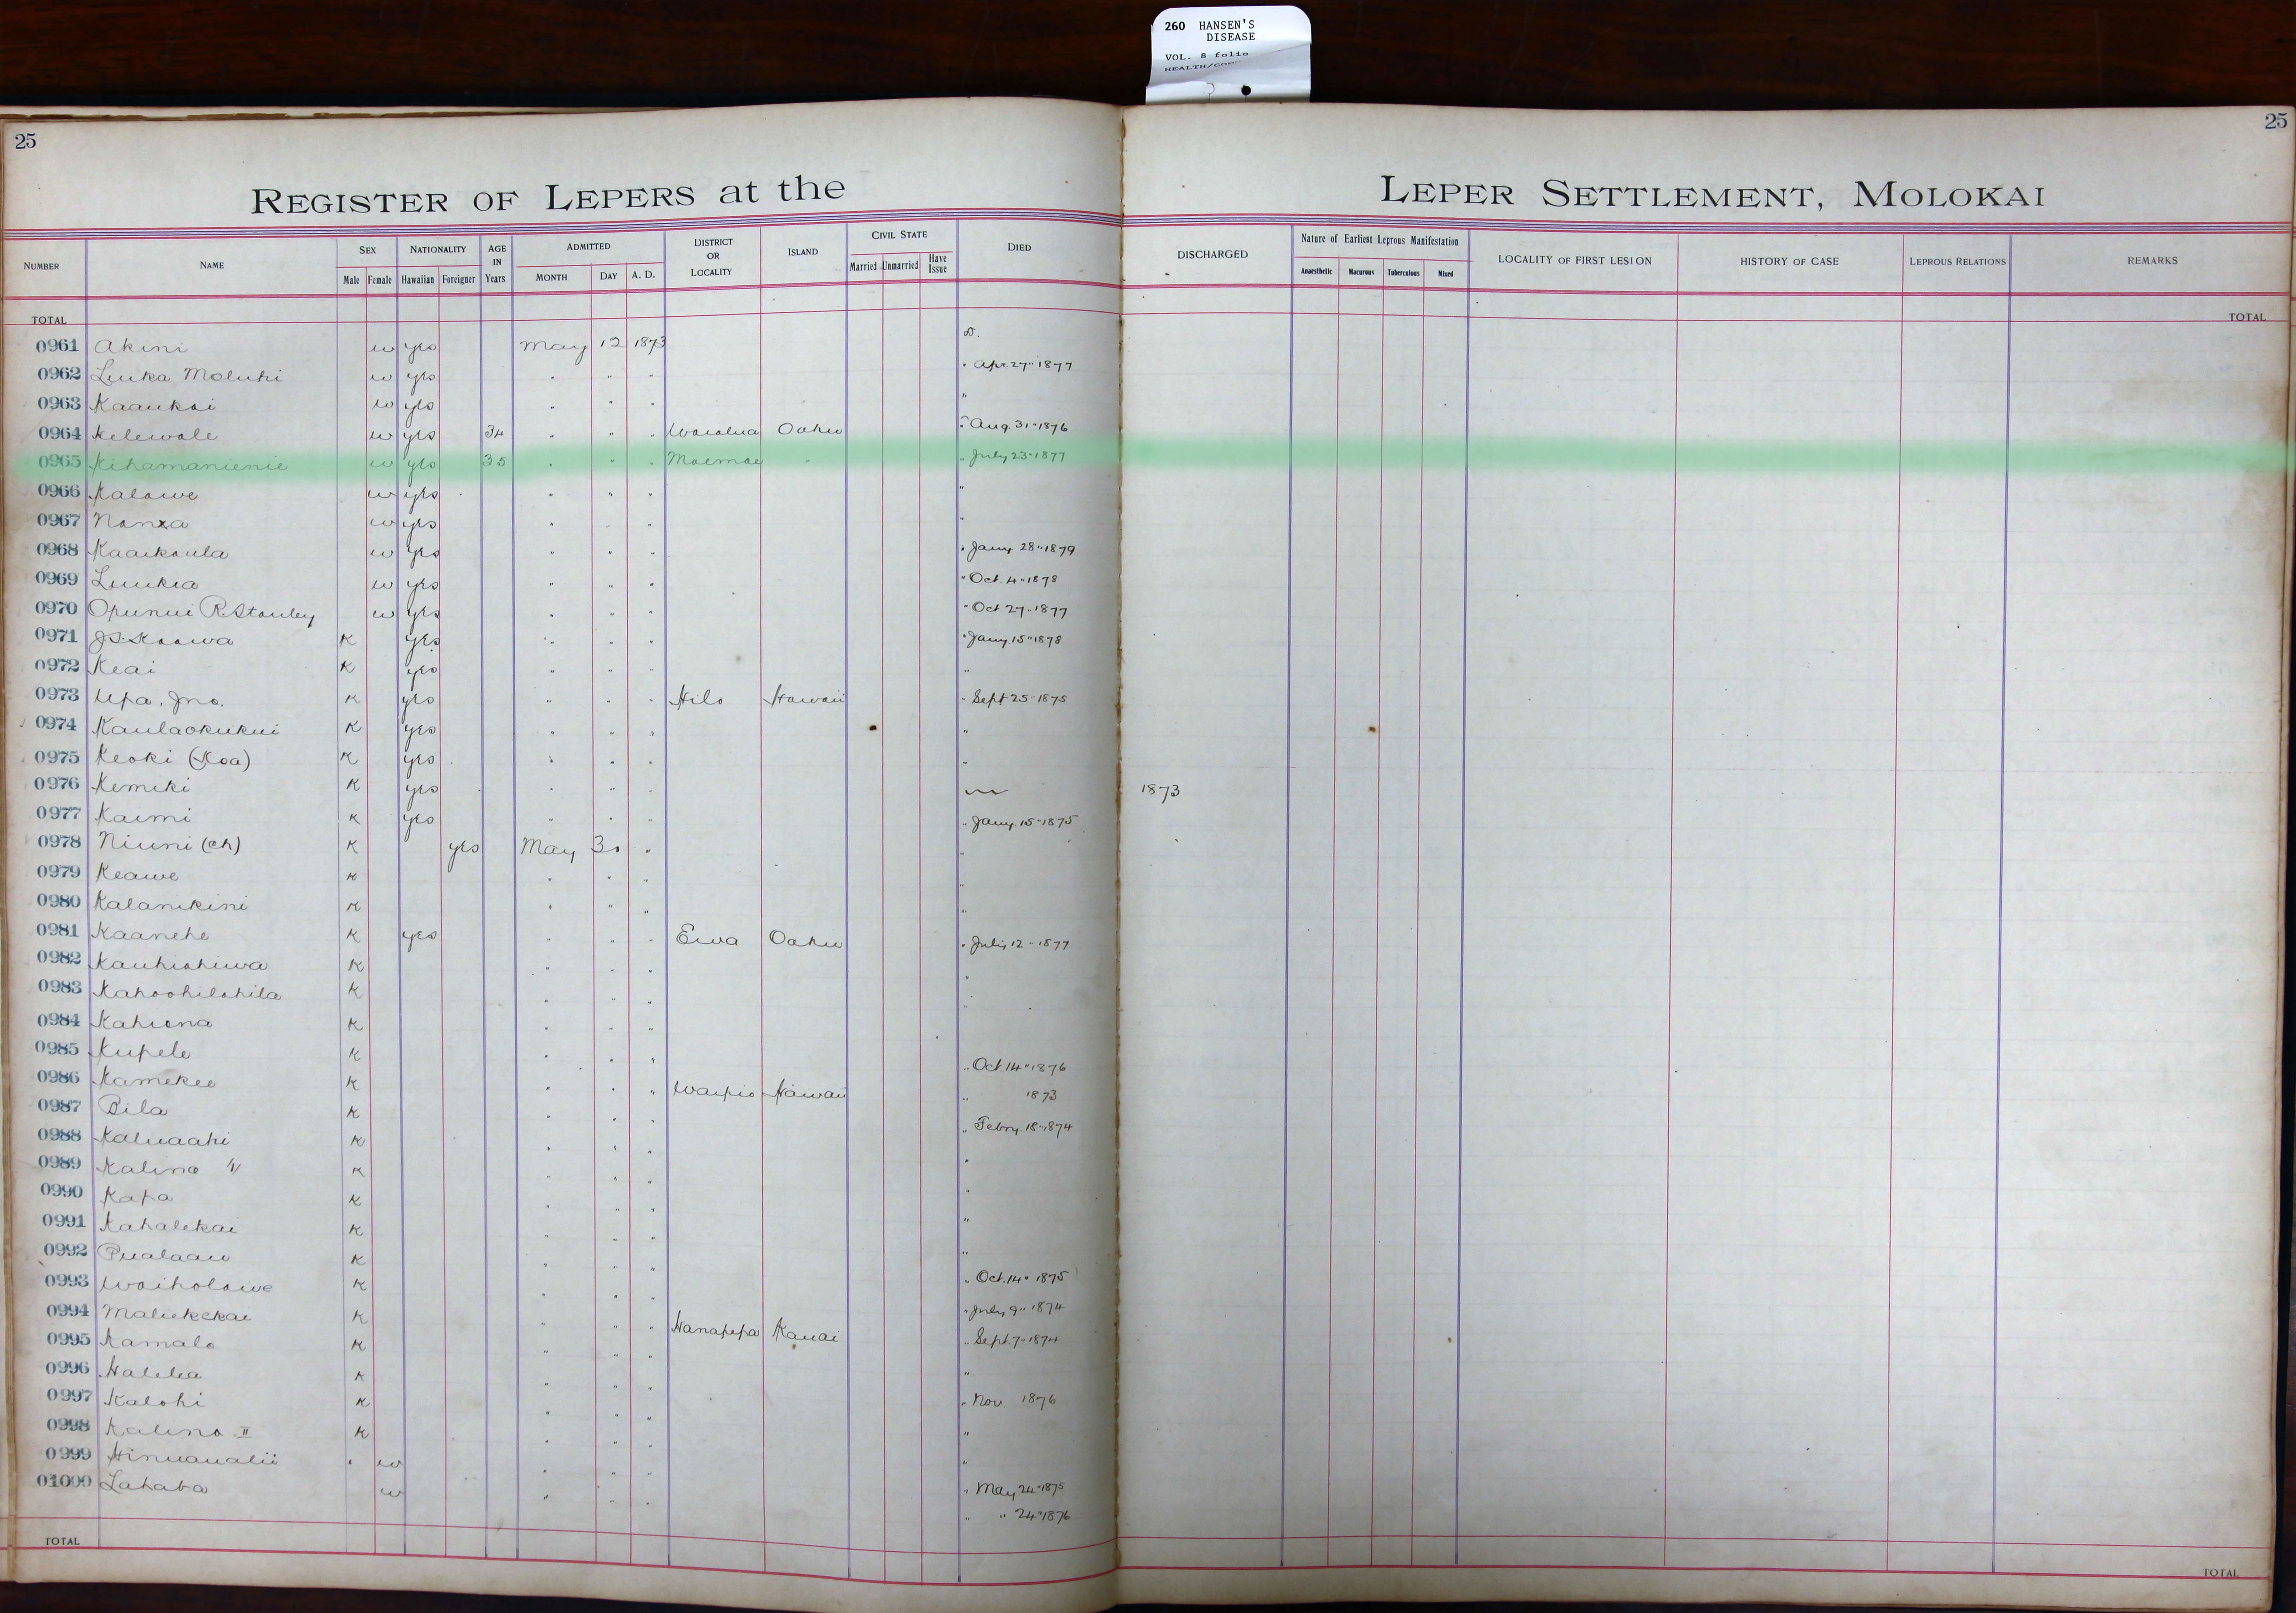 260 HANSEN'S
DISEASE
VOL. 8 folio
25
25
REGISTER OF LEPERS at the
LEPER SETTLEMENT, MOLOKAI
NUMBER NAME SEX Male Female NATIONALITY Hawaiian Foreigner AGE IN Years ADMITTED MONTH DAY A. D. DISTRICT OR LOCALITY ISLAND CIVIL STATE Married Unmarried Have Issue DIED DISCHARGED Nature of Earliest Leprous Manifestation Anaesthetic Macurous Tuberculous Mixed LOCALITY OF FIRST LESION HISTORY OF CASE LEPROUS RELATIONS REMARKS
TOTAL TOTAL
0961 Akini w yes May 12 1873 D.
0962 Luika Moluhi w yes " " " " Apr. 27" 1877
0963 Kaaukai w yes " " " "
0964 Kelewale w yes 34 " " " Waialua Oahu " Aug. 31" 1876
0965 Kihamanienie w yes 35 " " " Moemoe " " July 23" 1877
0966 Kalawe w yes " " " "
0967 w yes " " " "
0968 Kaaikaula w yes " " " " Jany 28" 1879
0969 Luukia w yes " " " " Oct. 4" 1878
0970 Opunui R. Stanley w yes " " " " Oct 27" 1877
0971 J.S. Kaawa K yes " " " " Jany. 15" 1878
0972 Keai K yes " " " "
0973 Upa. Jno. K yes " " " Hilo Hawaii " Sept 25" 1875
0974 Kaulaokukui K yes " " " "
0975 Keoki (Koa) K yes " " " "
0976 Kemiki K yes " " " 1873
0977 Kaimi K yes " " " " Jany. 15" 1875
0978 Niuni (ch) K yes May 30 " "
0979 Keawe K " " " "
0980 Kalanikini K " " " "
0981 Kaanehe K yes " " " Ewa Oahu " July 12" 1877
0982 Kauhiahiwa K " " " "
0983 Kahoohilahila K " " " "
0984 Kahiona K " " "
0985 Kupele K " " " " Oct. 14" 1876
0986 Kamekeo K " " " Waipio Hawaii " 1873
0987 Bila K " " " " Febry. 18" 1874
0988 Kaluaahi K " " " "
0989 Kalino K " " " "
0990 Kapa K " " " "
0991 Kahalekai K " " " "
0992 Pualaau K " " " " Oct. 14" 1875
0993 Waiholowe K " " " " July 9" 1874
0994 Maliekekai K " " " Hanapepa Kauai " Sept. 7" 1874
0995 Kamalo K " " " "
0996 Halelea K " " " " Nov. 1876
0997 Kalohi K " " " "
0998 Kalino II K " " " "
0999 Hinuaualii w " " " " May 24" 1875
01000 Lahaba w " " " " " 24" 1876
TOTAL TOTAL